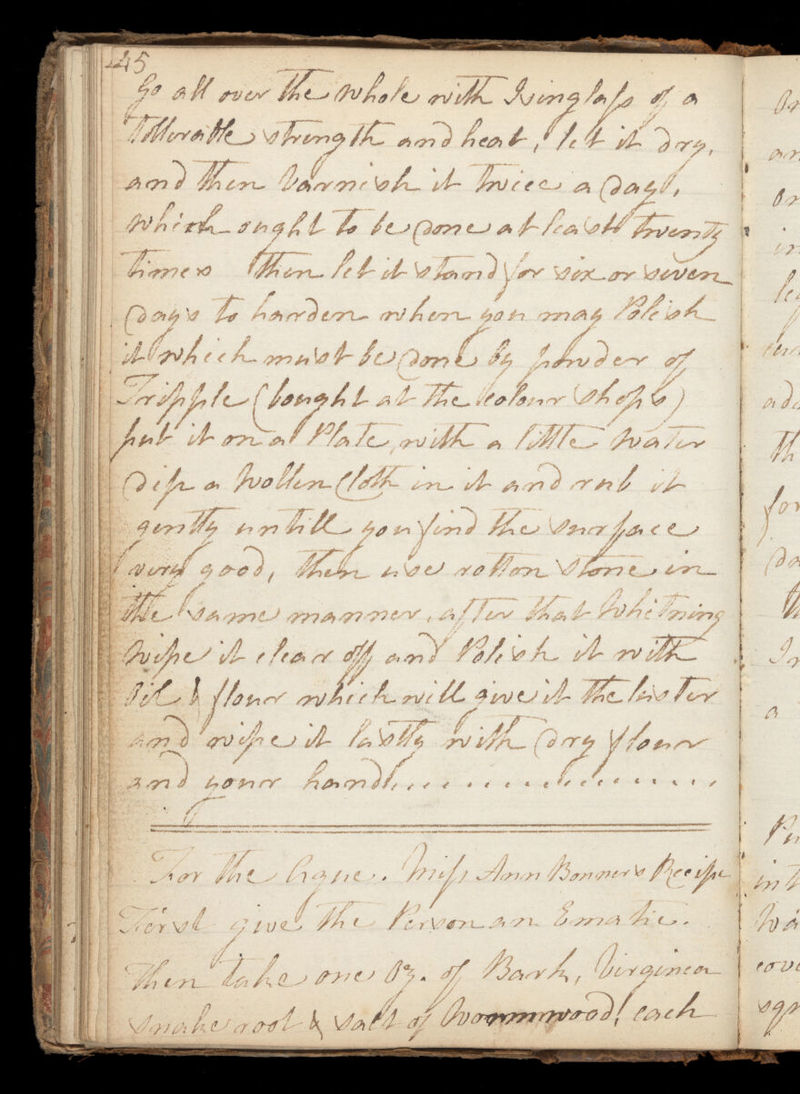 45
Go all over the whole with Isinglass of a
tollerable strength and heat, let it dry,
and then Varnish it twice a Day,
which ought to be done at least twenty
times then let it stand for six or seven
Days to harden when you may Polish
it which must be done by powder of
Tripple (bought at the colour shops)
put it on a Plate, with a little Water
Dip a Wollen Cloth in it and rub it
gently untill you find the surface
very good, then use rotton stone in
the same manner, after that Whitning
Wipe it clear off and Polish it with
Oil & flour which will give it the luster
and wipe it lastly with Dry flour
and your hand
For the Ague. Miss Ann Bonner's Recipe
First give the Person an Ematic.
Then take one Oz. of Bark, Virginea
snake root & salt of Wormwood, each